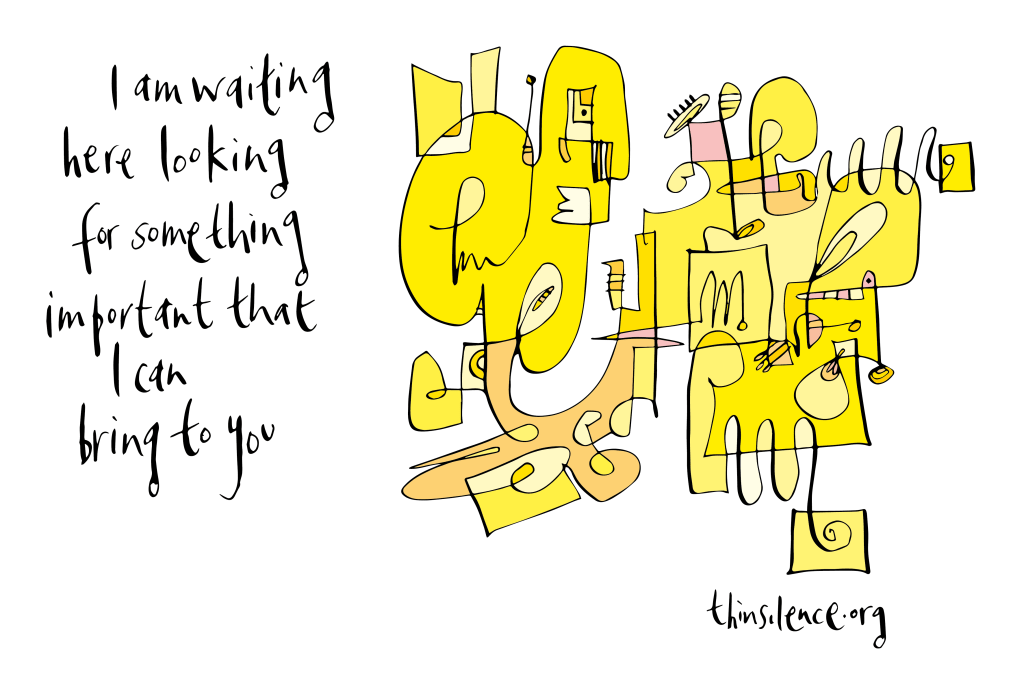 I am waiting
here looking
for something
important that
I can
bring to you
thinsilence.org